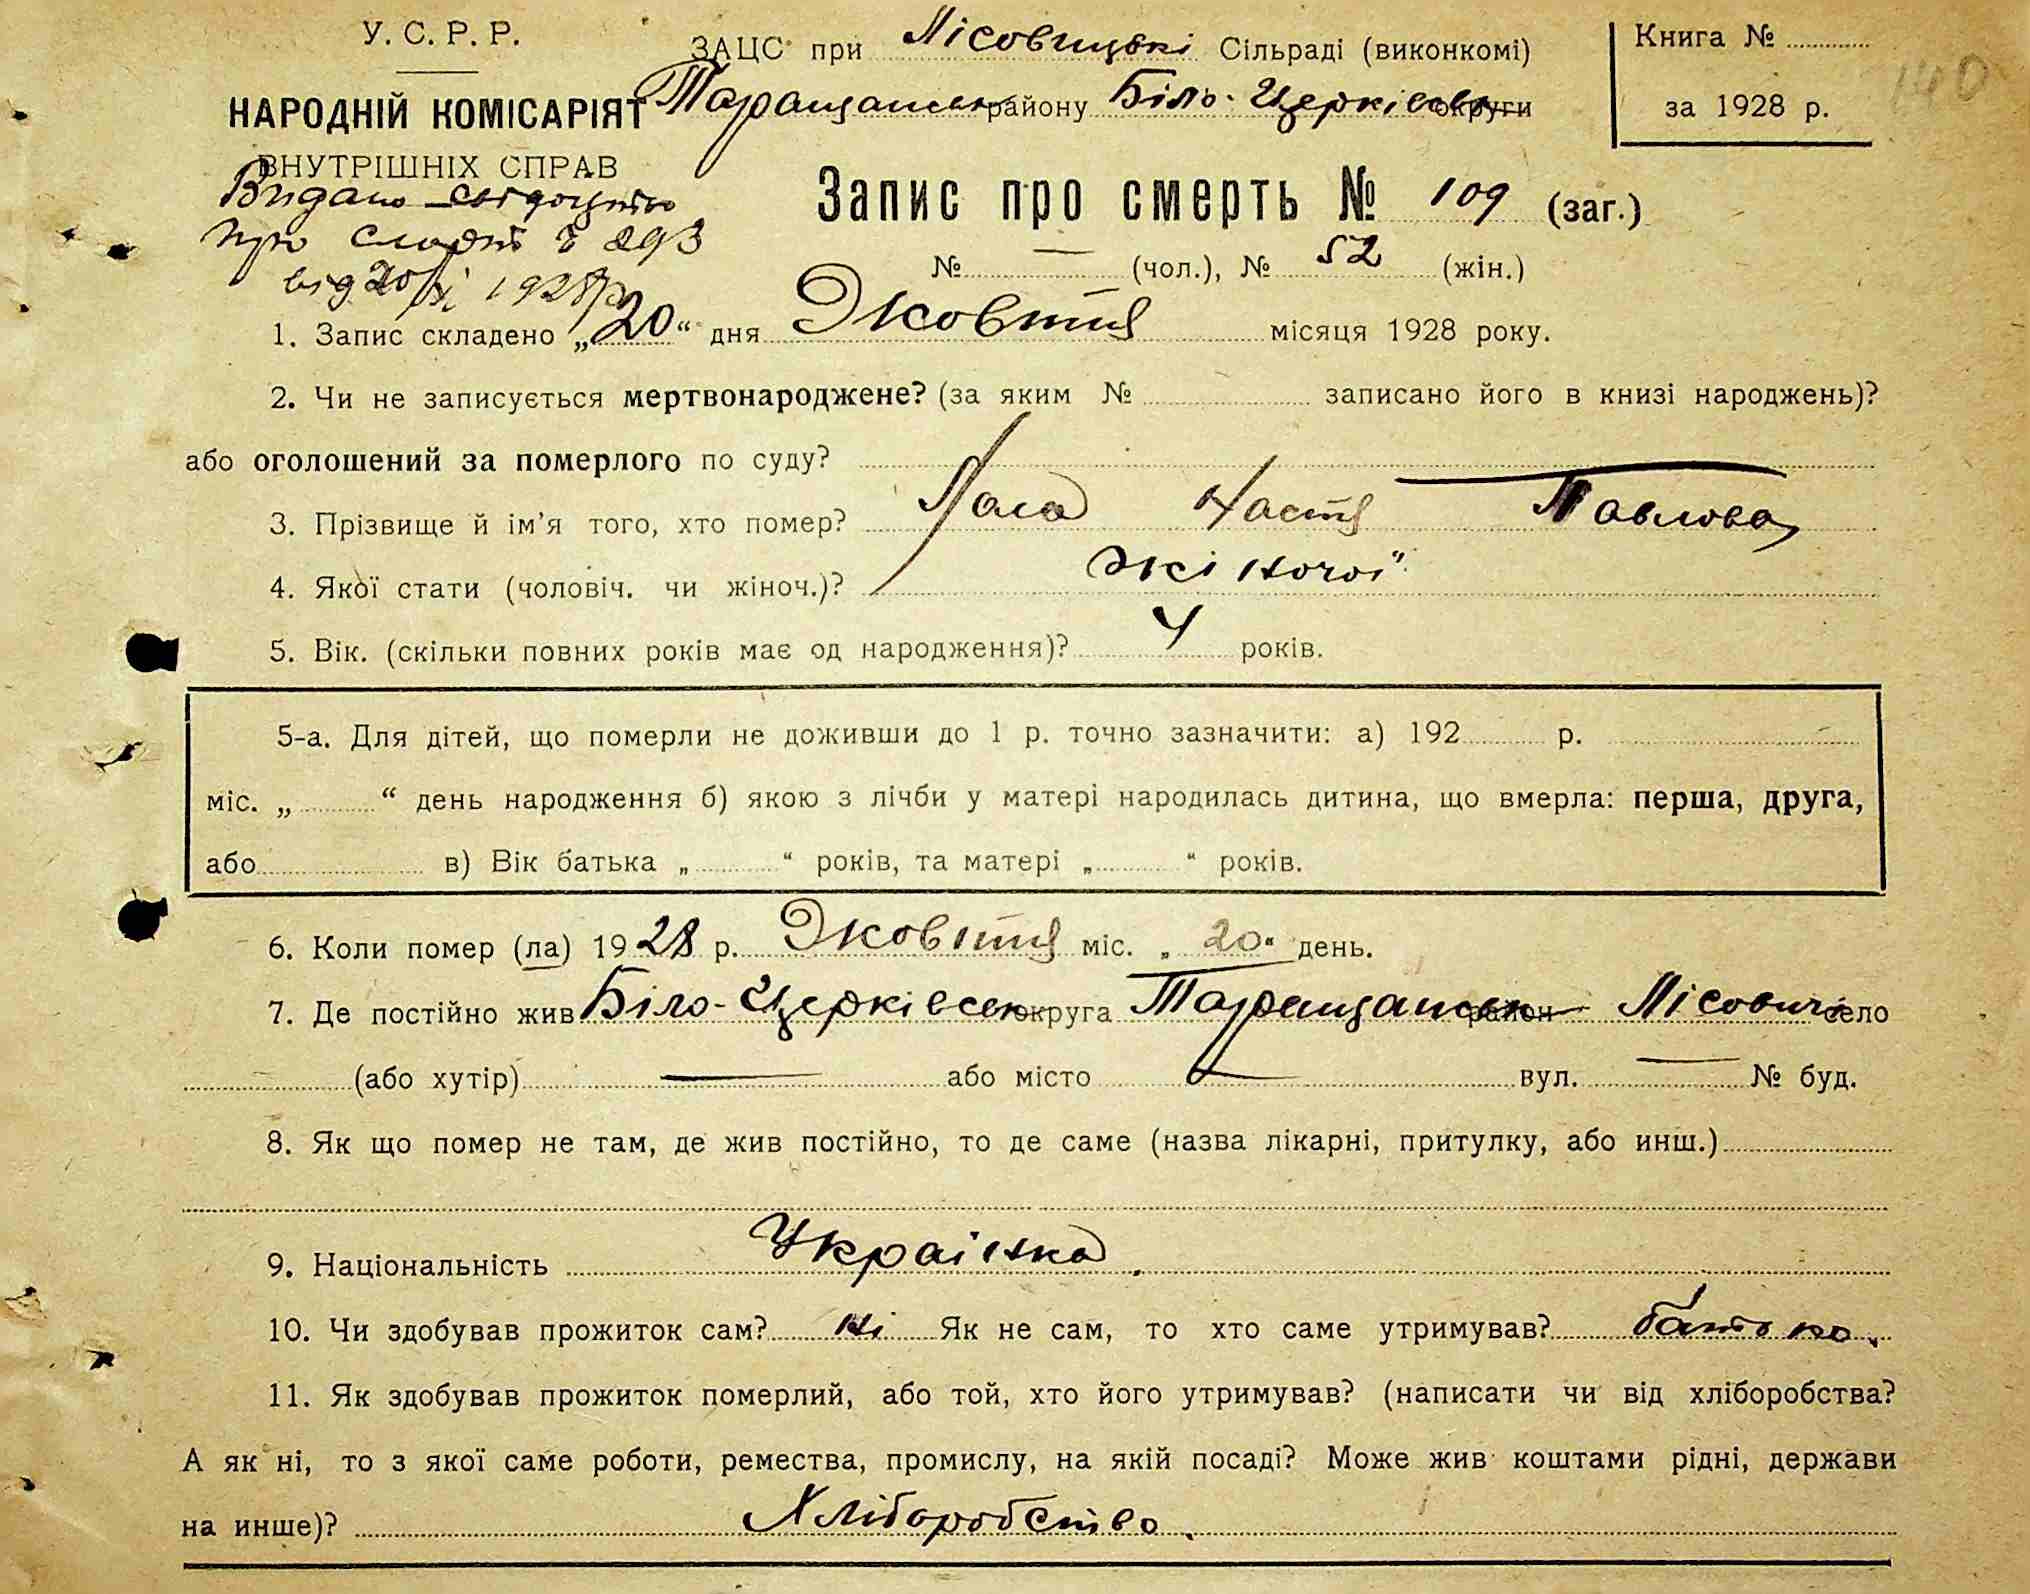 У. С. Р. Р.
НАРОДНІЙ КОМІСАРІЯТ
ВНУТРІШНІХ СПРАВ
Видано свідоцтво
про смерть № 293
від 20/X 1928 р
ЗАЦС при Лісовицькі Сільраді (виконкомі)
Таращанськ району Біло-Церківсько округи
Книга №
за 1928 р.
140
Запис про смерть № 109 (заг.)
№ — (чол.), № 52 (жін.)
1. Запис складено „20“ дня Жовтня місяця 1928 року.
2. Чи не записується мертвонароджене? (за яким № записано його в книзі народжень)?
або оголошений за померлого по суду?
3. Прізвище й ім’я того, хто помер? Настя Павлова
4. Якої стати (чоловіч. чи жіноч.)? жіночої
5. Вік. (скільки повних років має од народження)? 4 років.
5-а. Для дітей, що померли не доживши до 1 р. точно зазначити: а) 192 р.
міс. „ “ день народження б) якою з лічби у матері народилась дитина, що вмерла: перша, друга,
або в) Вік батька „ “ років, та матері „ “ років.
6. Коли помер (ла) 1928 р. Жовтня міс. „20“ день.
7. Де постійно жив Біло-Церківськ округа Таращанськ район Лісовичі село
(або хутір) — або місто — вул. — № буд.
8. Як що помер не там, де жив постійно, то де саме (назва лікарні, притулку, або инш.)
9. Національність Українка.
10. Чи здобував прожиток сам? ні Як не сам, то хто саме утримував? батько.
11. Як здобував прожиток померлий, або той, хто його утримував? (написати чи від хліборобства?
А як ні, то з якої саме роботи, ремества, промислу, на якій посаді? Може жив коштами рідні, держави
на инше)? Хліборобство.